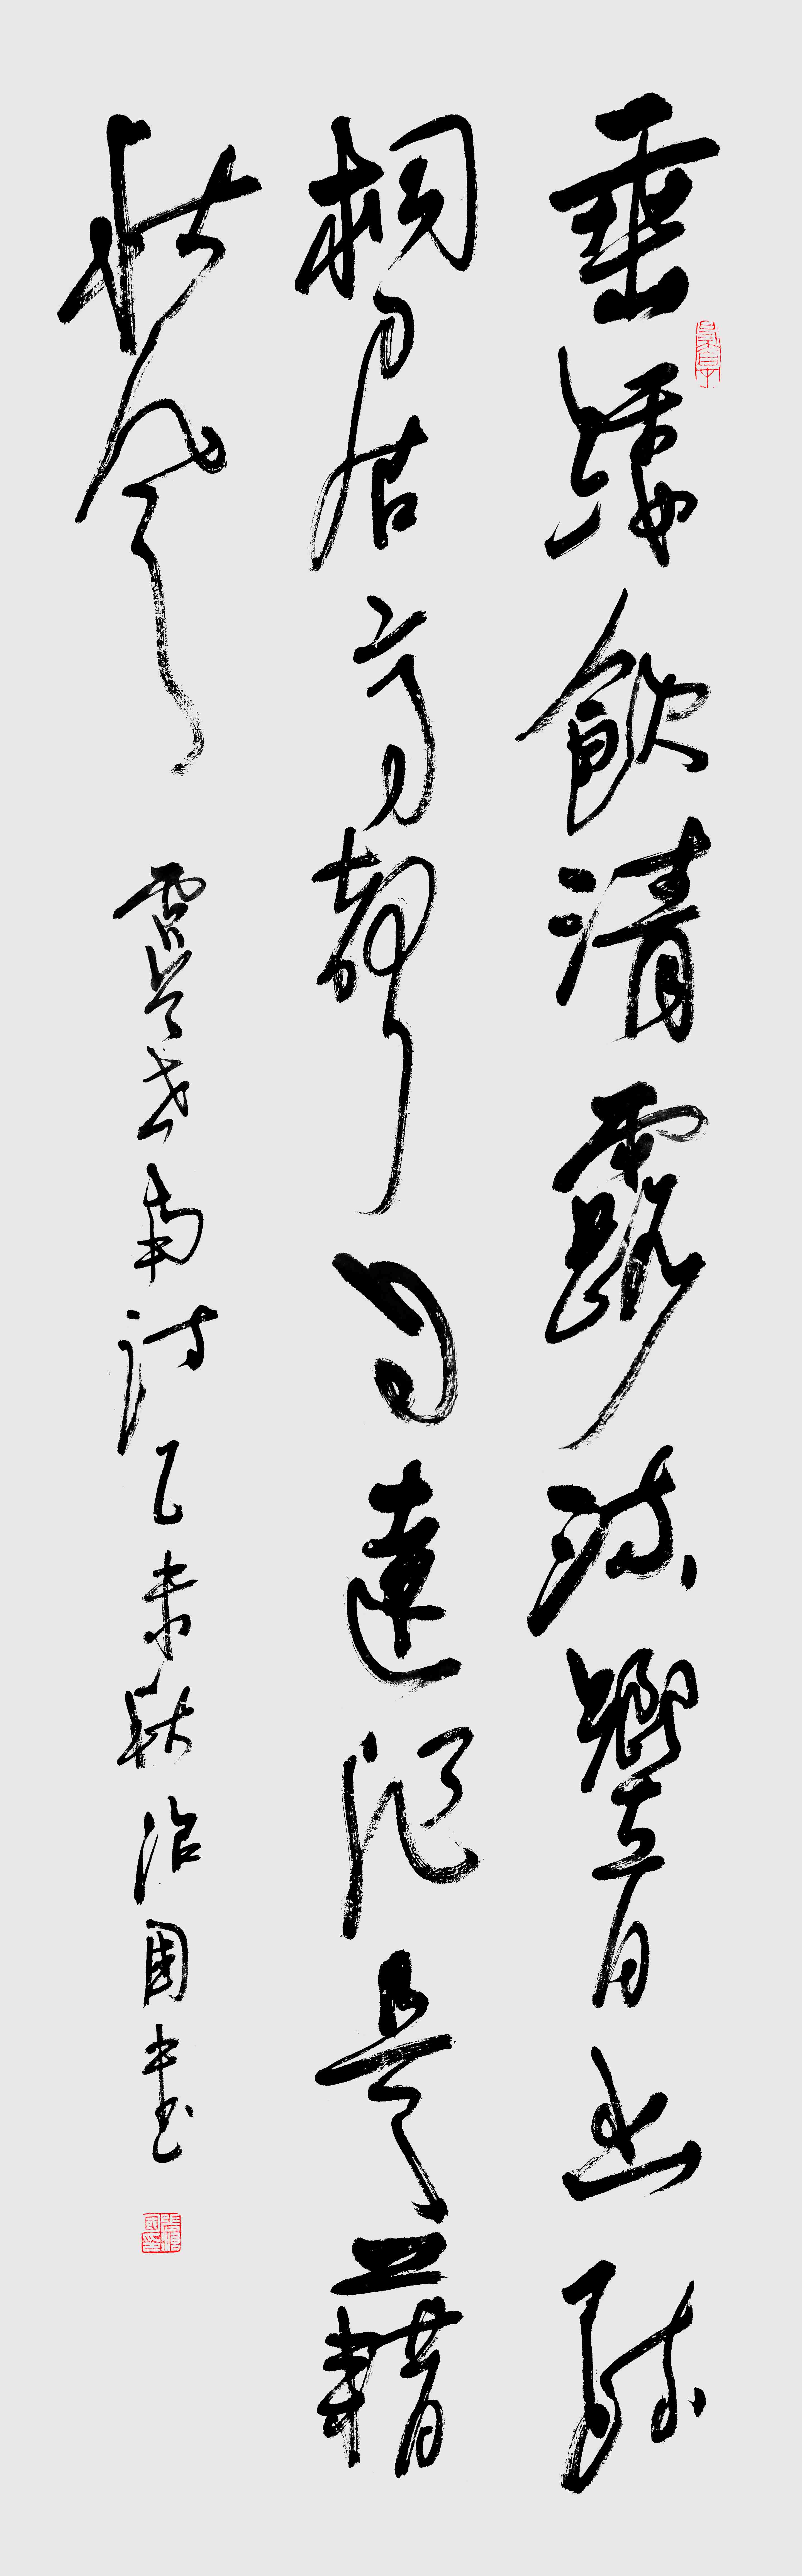 垂緌飲清露流響出疏
桐居高聲自遠非是藉
秋風 虞世南詩乙未秋治國書